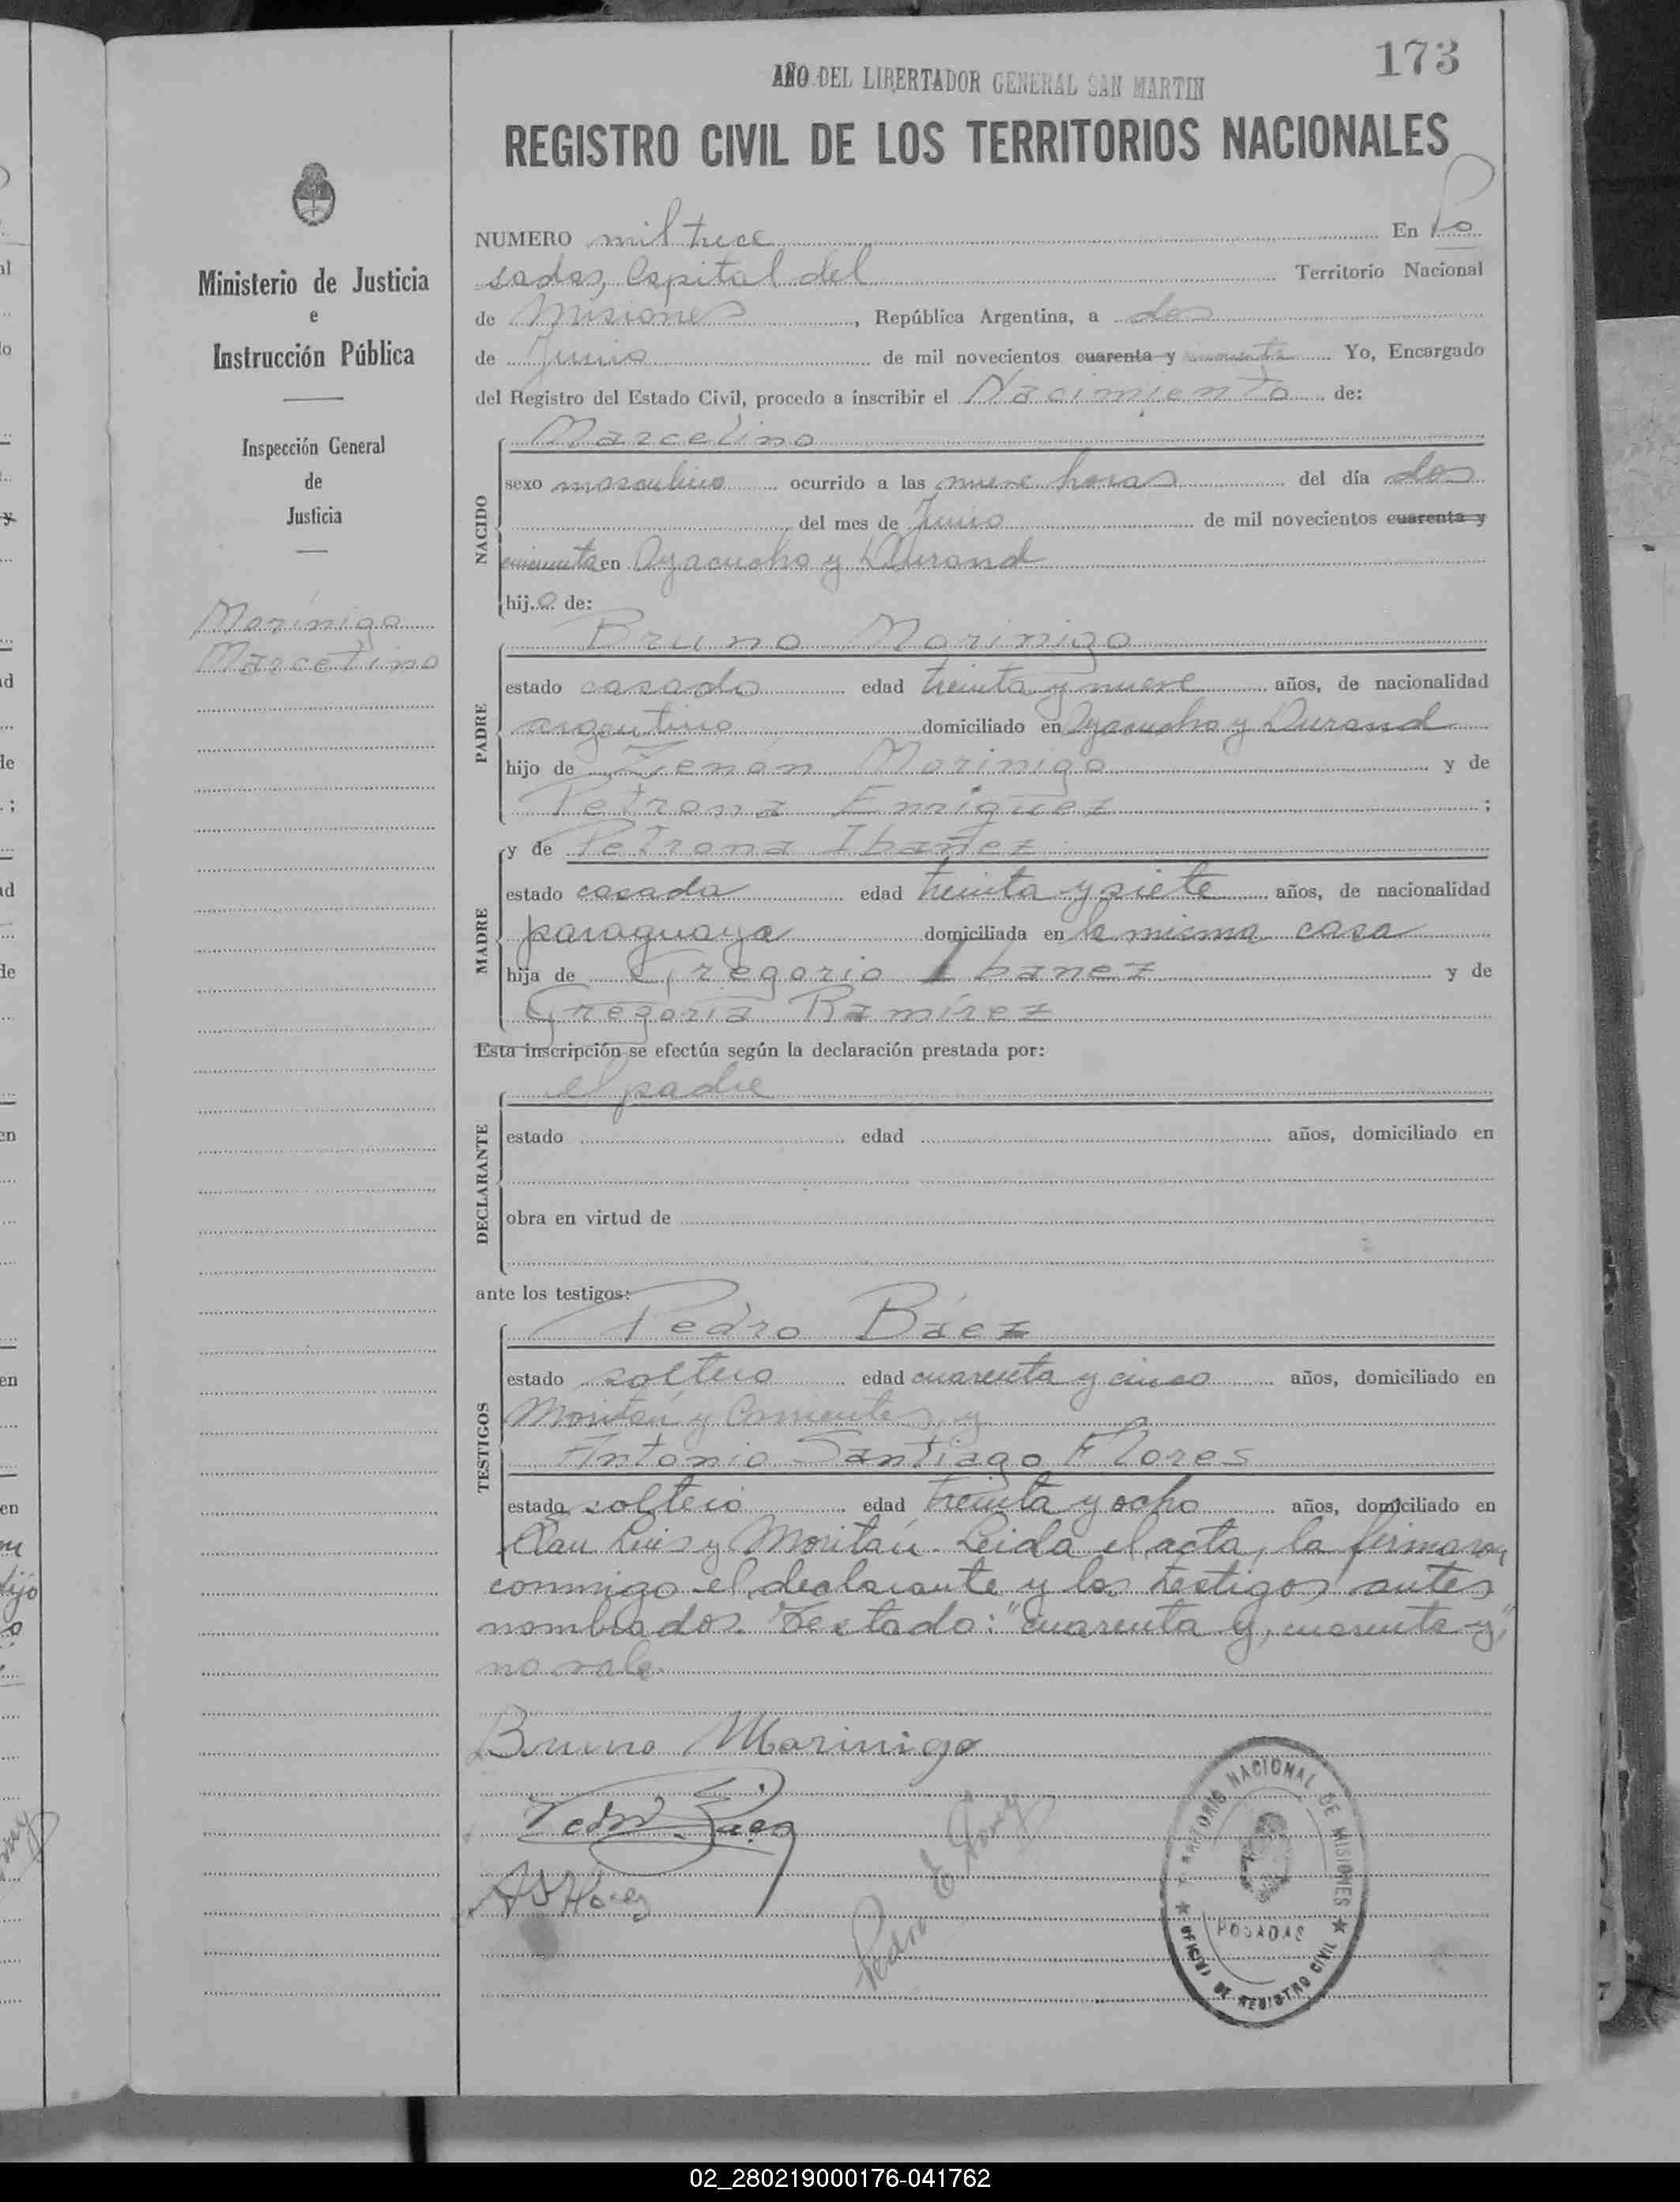 173
AÑO DEL LIBERTADOR GENERAL SAN MARTIN
REGISTRO CIVIL DE LOS TERRITORIOS NACIONALES
Ministerio de Justicia
e
Instrucción Pública
Inspección General
de
Justicia
Morínigo
Marcelino
NUMERO mil trece En Po
sadas, Capital del Territorio Nacional
de Misiones, República Argentina, a dos
de Junio de mil novecientos cuarenta y cincuenta Yo, Encargado
del Registro del Estado Civil, procedo a inscribir el Nacimiento de:
NACIDO
Marcelino
sexo masculino ocurrido a las nueve horas del día dos
del mes de Junio de mil novecientos cuarenta y
cincuenta en Ayacucho y Durand
hijo de:
PADRE
Bruno Morinigo
estado casado edad treinta y nueve años, de nacionalidad
argentino domiciliado en Ayacucho y Durand
hijo de Zenón Morinigo y de
Petrona Enriquez ;
MADRE
y de Petrona Ibañez
estado casada edad treinta y siete años, de nacionalidad
paraguaya domiciliada en la misma casa
hija de Gregorio Ibanez y de
Gregoria Ramírez
Esta inscripción se efectúa según la declaración prestada por:
DECLARANTE
el padre
estado edad años, domiciliado en
obra en virtud de
ante los testigos:
TESTIGOS
Pedro Báez
estado soltero edad cuarenta y cinco años, domiciliado en
Moritán y Corrientes, y
Antonio Santiago Flores
estado soltero edad treinta y ocho años, domiciliado en
San Luis y Moritán. Leida el acta, la firmaron
conmigo el declarante y los testigos antes
nombrados. Testado: "cuarenta y, cuarenta y",
no vale.
Bruno Morinigo
Pedro Báez
A S Flores
Pedro E
TERRITORIO NACIONAL DE MISIONES
POSADAS
OFICINA DE REGISTRO CIVIL
02_280219000176-041762